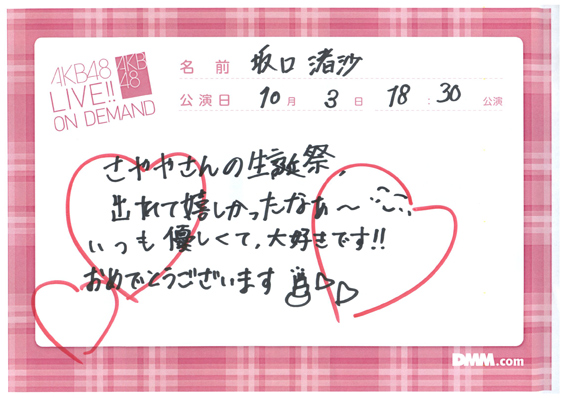 AKB48
LIVE!!
ON DEMAND
AKB
48
名前 坂口渚沙
公演日 10月 3日 18:30 公演
さややさんの生誕祭、
出れて嬉しかったなぁ〜
いつも優しくて、大好きです!!
おめでとうございます
DMM.com